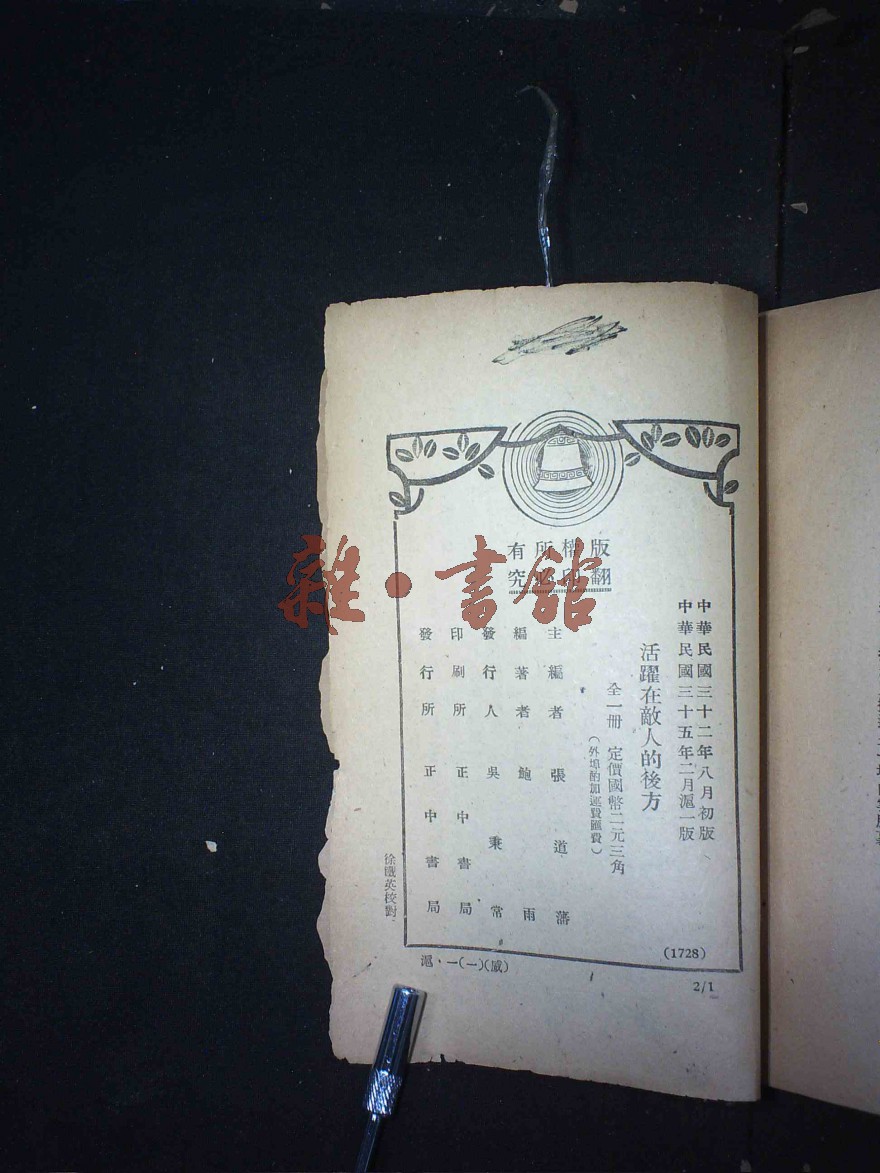 版權所有
翻印必究
中華民國三十二年八月初版
中華民國三十五年二月滬一版
活躍在敵人的後方
全一册 定價國幣二元三角
(外埠酌加運費匯費)
主編者 張道藩
編著者 鮑雨
發行人 吳秉常
印刷所 正中書局
發行所 正中書局
徐 英校對
(1728)
滬·一(一)
2/1
雜·書館